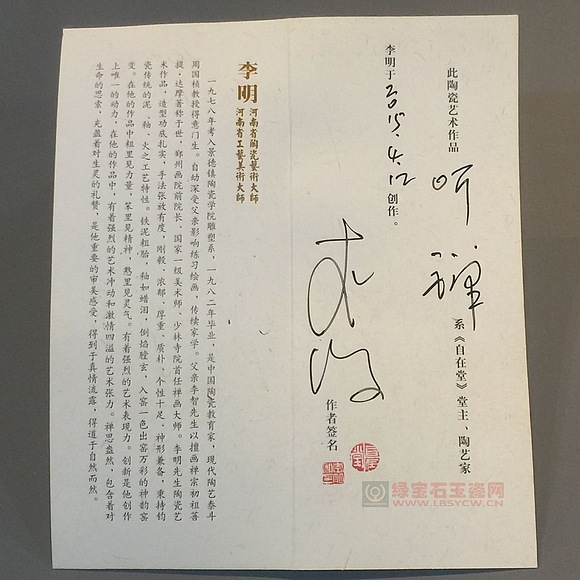 此陶瓷艺术作品 听禅 系《自在堂》堂主、陶艺家
李明于2015.4.12创作。
作者签名
李明
河南省陶瓷藝術大师
河南省工藝美術大师
一九七八年考入景德镇陶瓷学院雕塑系，一九八二年毕业，是中国陶瓷教育家，现代陶艺泰斗
周国桢教授得意门生。自幼深受父亲影响练习绘画，传续家学。父亲李智先生以擅画禅宗初祖菩
提·达摩著称于世，郑州画院前院长、国家一级美术师、少林寺院首任禅画大师。李明先生陶瓷艺
术作品，造型功底扎实，手法张放有度，刚毅、浓郁、厚重、质朴、个性十足，神形兼备，秉持钧
瓷传统的泥、釉、火之工艺特性。铁泥粗胎，釉如蜡泪，倒焰膛玄，入窑一色出窑万彩的神韵窑
变。在他的作品中粗里见力量，笨里见精神，憨里见灵气。有着强烈的艺术表现力。创新是他创作
上唯一的动力，在他的作品中，有着强烈的艺术冲动和激情四溢的艺术张力。禅思盎然，包含着对
生命的思索，充盈着对生灵的礼赞，是他重要的审美感受，得到于真情流露，得道于自然而然。
绿宝石玉瓷网
WWW.LBSYCW.CN